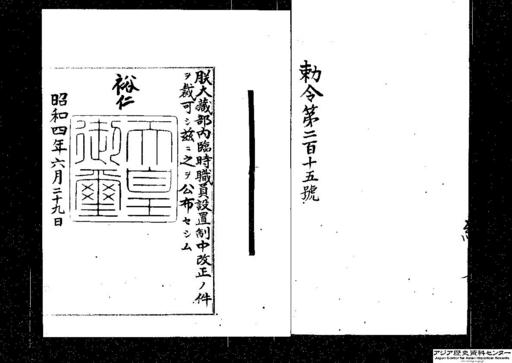 勅令第二百十五號
朕大藏部內臨時職員設置制中改正ノ件
ヲ裁可シ茲ニ之ヲ公布セシム
裕仁
天皇
御璽
昭和四年六月二十九日
アジア歴史資料センター
Japan Center for Asian Historical Records